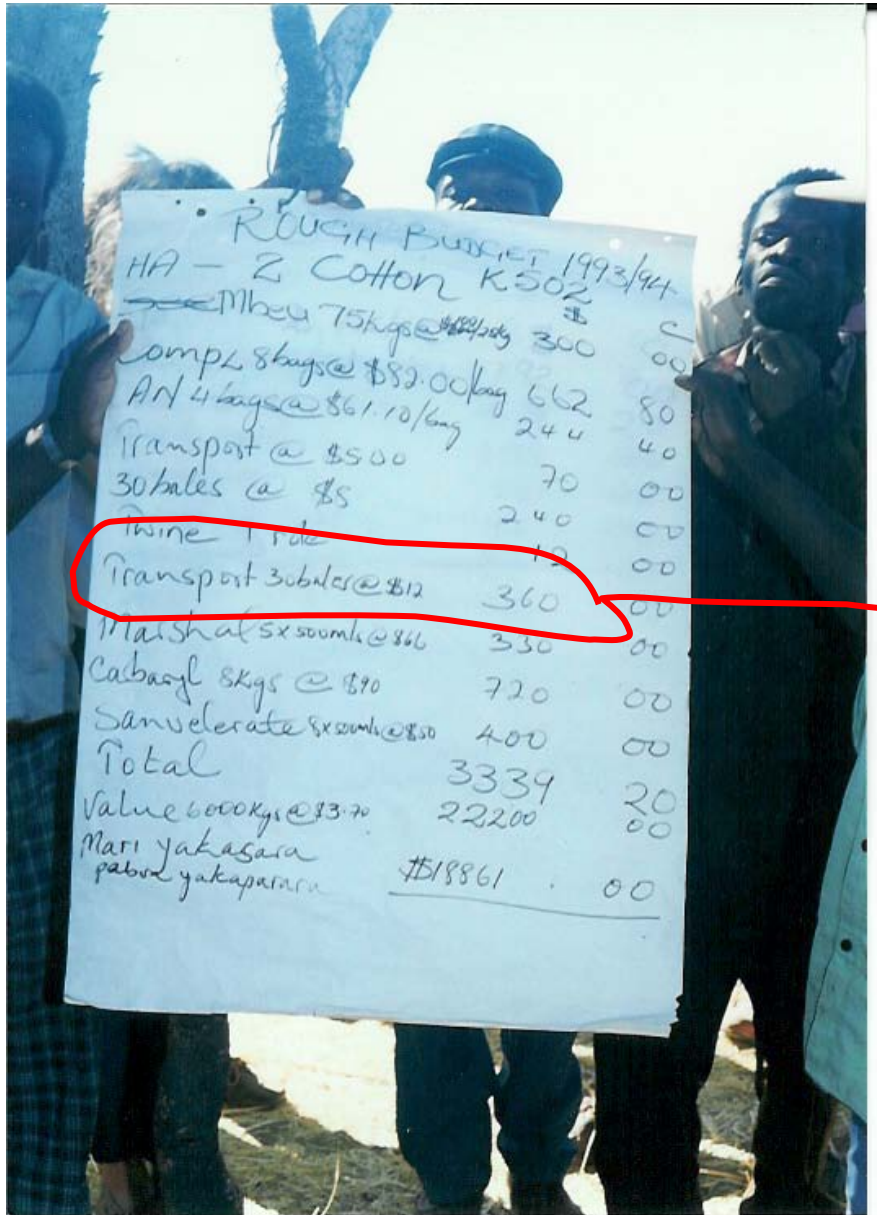 ROUGH BUDGET 1993/94
HA - 2 Cotton K502
$ C
Mbeu 75kgs@ 300 00
Comp L 8bags@ $82.00/bag 662 80
AN 4bags@$61.10/bag 244 40
Transport @ $500 70 00
30bales @ $5 240 00
Twine 1 role 12 00
Transport 30bales@$12 360 00
Marshal 5x500mls@$66 330 00
Carbaryl 8Kgs @ $90 720 00
Sanvelerate 8x500mls@$50 400 00
Total 3339 20
Value 6000Kgs@$3.70 22200 00
Mari yakasara
pabva yakaparara $18861 . 00